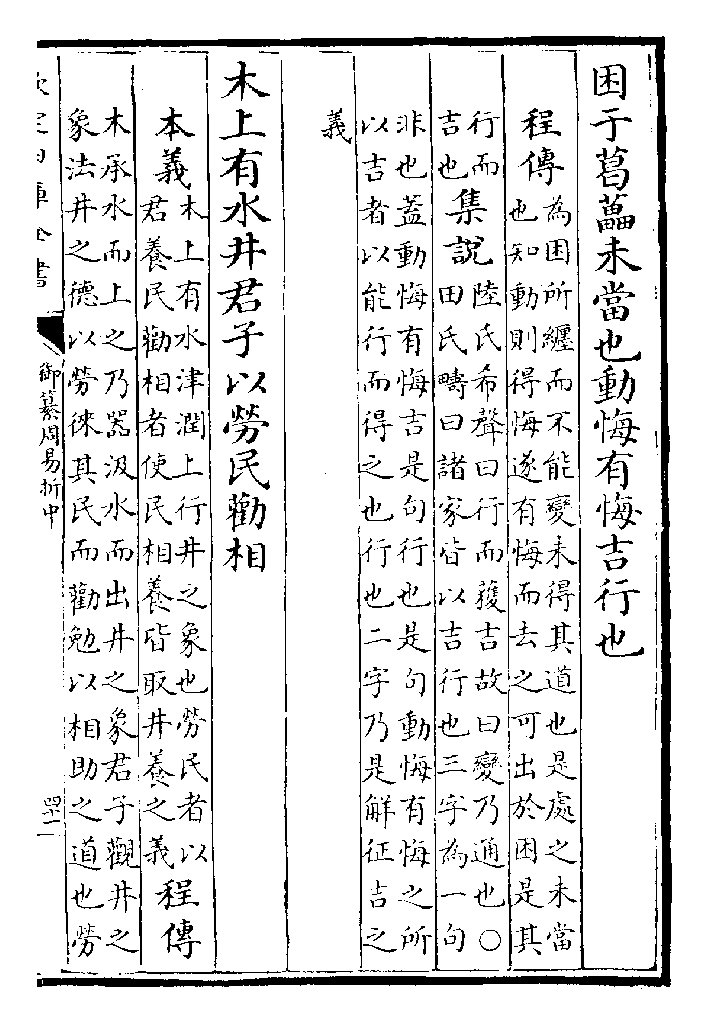 困于葛藟未當也動悔有悔吉行也
程傳為困所纏而不能變未得其道也是處之未當
也知動則得悔遂有悔而去之可出於困是其
行而吉也集說陸氏希聲曰行而獲吉故曰變乃通也○
田氏疇曰諸家皆以吉行也三字為一句
非也蓋動悔有悔吉是句行也是句動悔有悔之所
以吉者以能行而得之也行也二字乃是解征吉之
義
木上有水井君子以勞民勸相
本義木上有水津潤上行井之象也勞民者以
君養民勸相者使民相養皆取井養之義程傳
木承水而上之乃器汲水而出井之象君子觀井之
象法井之德以勞徠其民而勸勉以相助之道也勞
欽定四庫全書
御纂周易折中
四十二